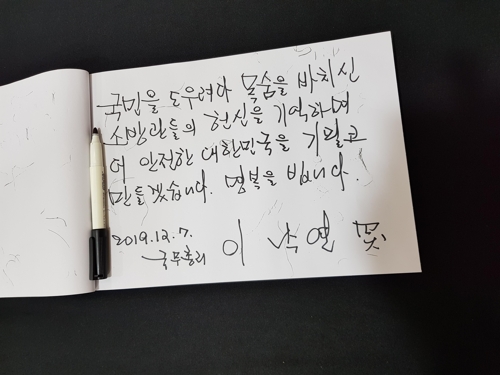 국민을 도우려다 목숨을 바치신
소방관들의 헌신을 기억하며
더 안전한 대한민국을 기필코
만들겠습니다. 명복을 빕니다.
2019.12.7.
국무총리 이 낙 연